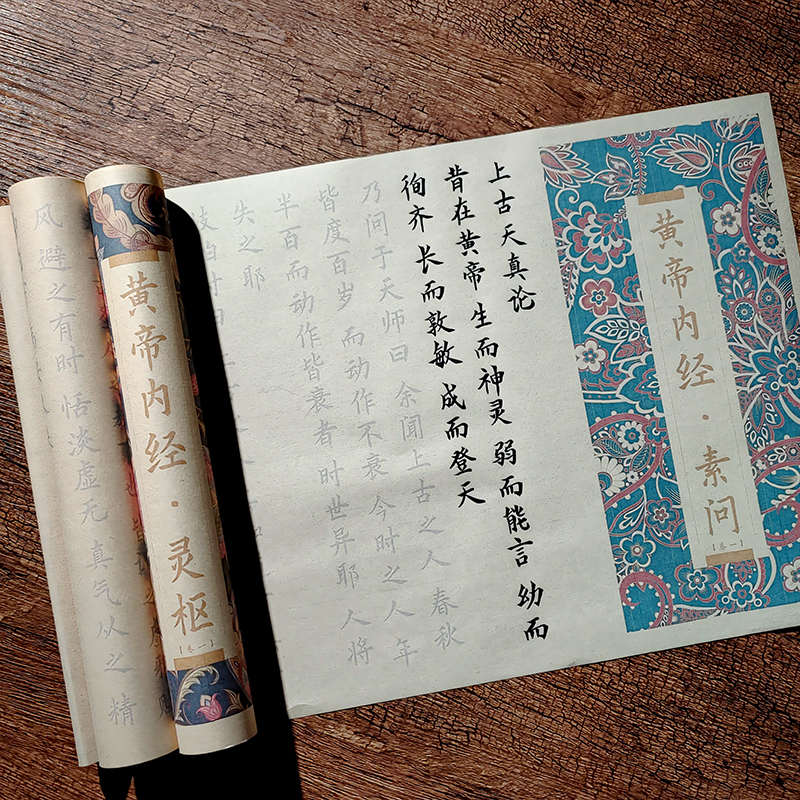 黄帝内经·素问
[卷一]
上古天真论
昔在黄帝 生而神灵 弱而能言 幼而
徇齐 长而敦敏 成而登天
乃问于天师曰 余闻上古之人 春秋
皆度百岁 而动作不衰 今时之人 年
半百而动作皆衰者 时世异耶 人将
失之耶
黄帝内经·灵枢
[卷一]
风 避之有时 恬淡虚无 真气从之 精